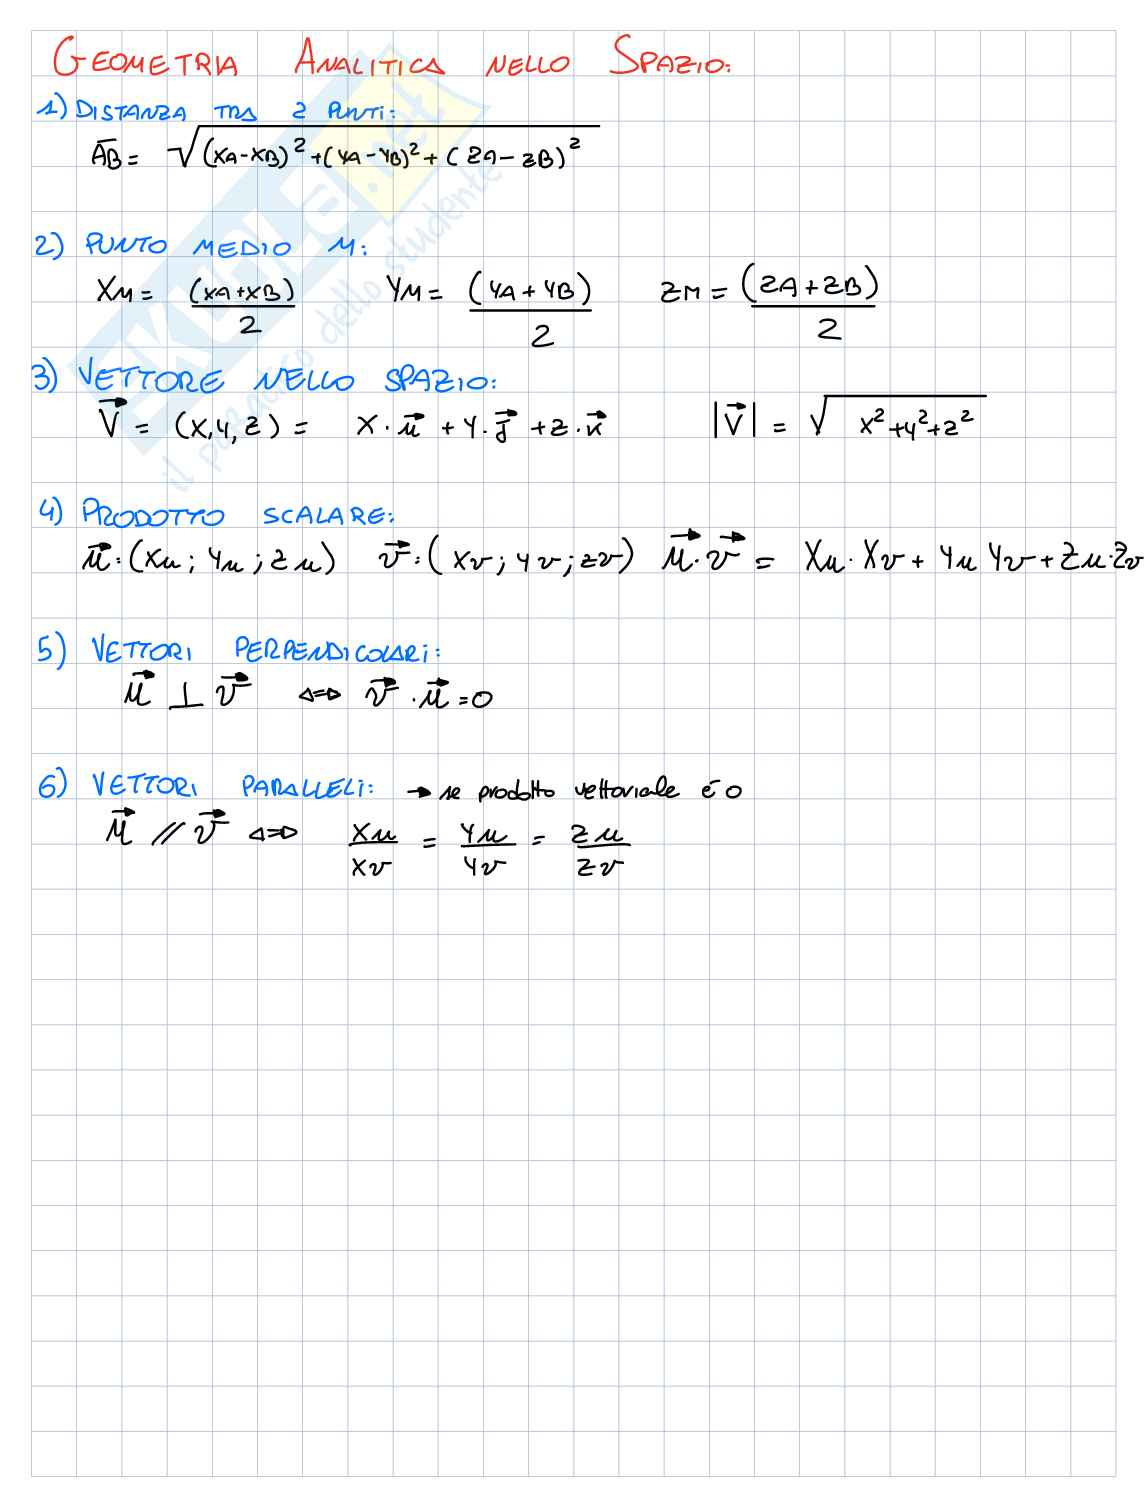 GEOMETRIA ANALITICA NELLO SPAZIO:
1) DISTANZA TRA 2 PUNTI:
A̅B̅ = √((xA-xB)² + (yA-yB)² + (zA-zB)²)
2) PUNTO MEDIO M:
xM = (xA+xB)/2 yM = (yA+yB)/2 zM = (zA+zB)/2
3) VETTORE NELLO SPAZIO:
V⃗ = (x,y,z) = x·u⃗ + y·j⃗ + z·k⃗ |V⃗| = √(x²+y²+z²)
4) PRODOTTO SCALARE:
u⃗:(xu; yu; zu) v⃗:(xv; yv; zv) u⃗·v⃗ = xu·xv + yu yv + zu·zv
5) VETTORI PERPENDICOLARI:
u⃗ ⊥ v⃗ ⇔ v⃗·u⃗ = 0
6) VETTORI PARALLELI: → se prodotto vettoriale é 0
u⃗ // v⃗ ⇔ xu/xv = yu/yv = zu/zv
SKUOLA.net
il paradiso dello studente